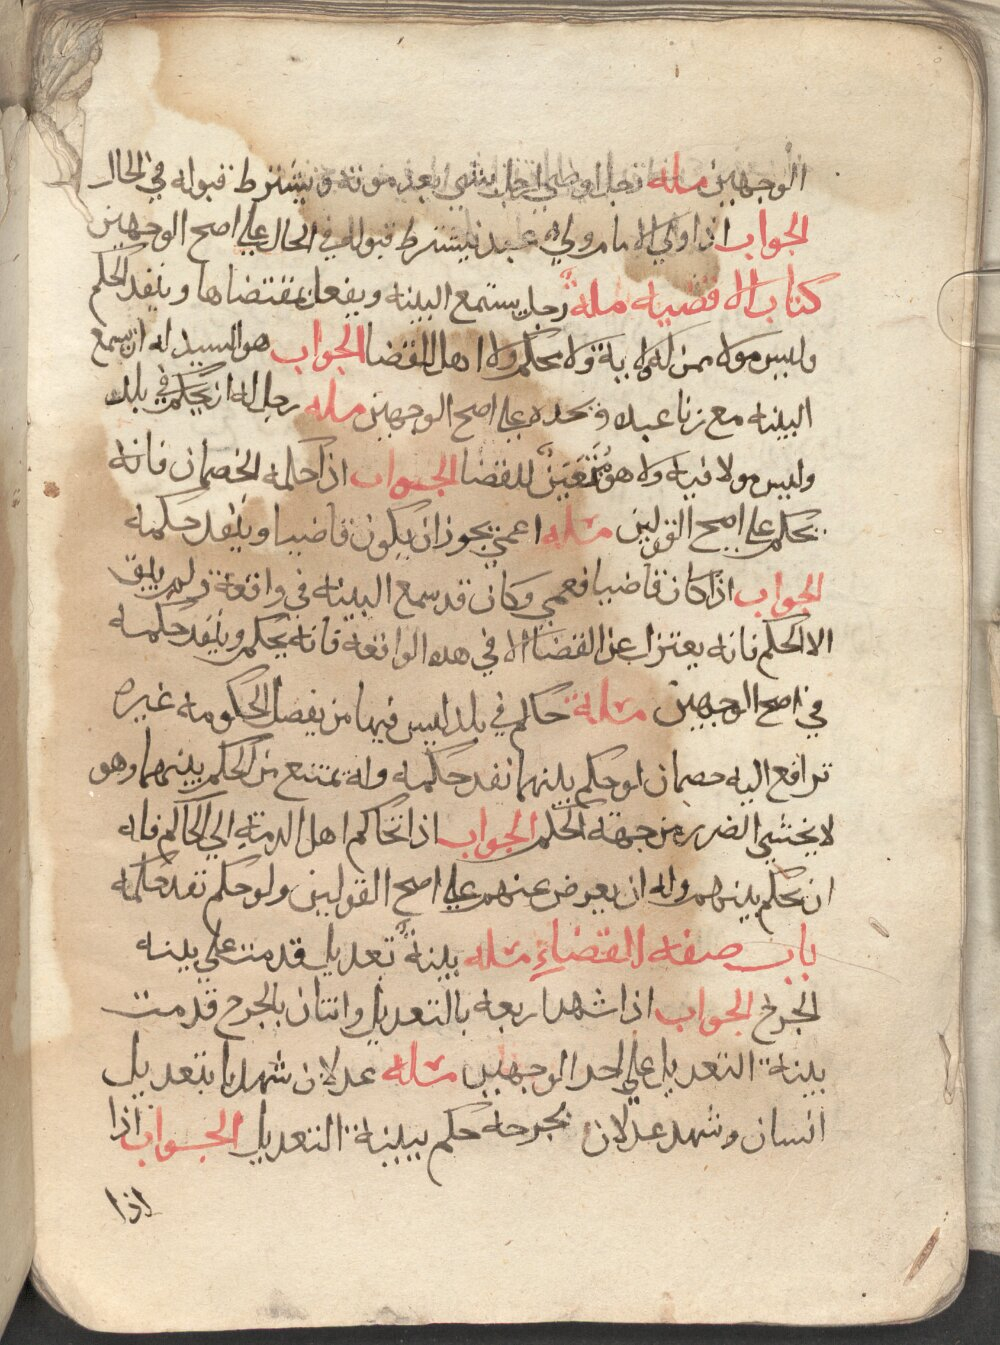 الوجهين مسله رجل اوصى الى رجل بشي بعد موته ويشترط قبوله في الحال
الجواب اذا ولى الامام ولي عهد يشترط قبوله في الحال على اصح الوجهين
كتاب الاقضيه مسلة رجل يستمع البينه ويفعل بمقتضاها وينفد الحكم
وليس مولا ممن له ولاية ولا محكم ولا اهل للقضا الجواب هو السيد له ان يسمع
البينه مع زنا عبده ويحده على اصح الوجهين مسله رجل له ان يحكم في بلد
وليس مولا فيه ولا هو متعين للقضا الجواب اذا حكمه الخصمان فانه
يحكم على اصح القولين مسله اعمى يجوز ان يكون قاضيا وينفد حكمه
الجواب اذا كان قاضيا فعمي وكان قد سمع البينه في واقعة ولم يبق
الا الحكم فانه يعتزل عن القضا الا في هده الواقعه فانه يحكم وينفد حكمه
في اصح الوجهين مسلة حاكم في بلد ليس فيها من يفصل الحكومه غيره
ترافع اليه خصمان لو حكم بينهما نفد حكمه وله يمتنع من الحكم بينهما وهو
لا يخشي الضرر من جهة الحكم الجواب اذا تحاكم اهل الدمة الى الحاكم فله
ان يحكم بينهم وله ان يعرض عنهم على اصح القولين ولو حكم نفد حكمه
باب صفه القضاء مسله بينة تعديل قدمت على بينه
الجرح الجواب اذا شهد اربعه بالتعديل واتنان بالجرح قدمت
بينة التعديل على احد الوجهين مسله عدلان شهدا بتعديل
انسان وشهد عدلان بجرحه حكم ببينة التعديل الجواب اذا
اذا